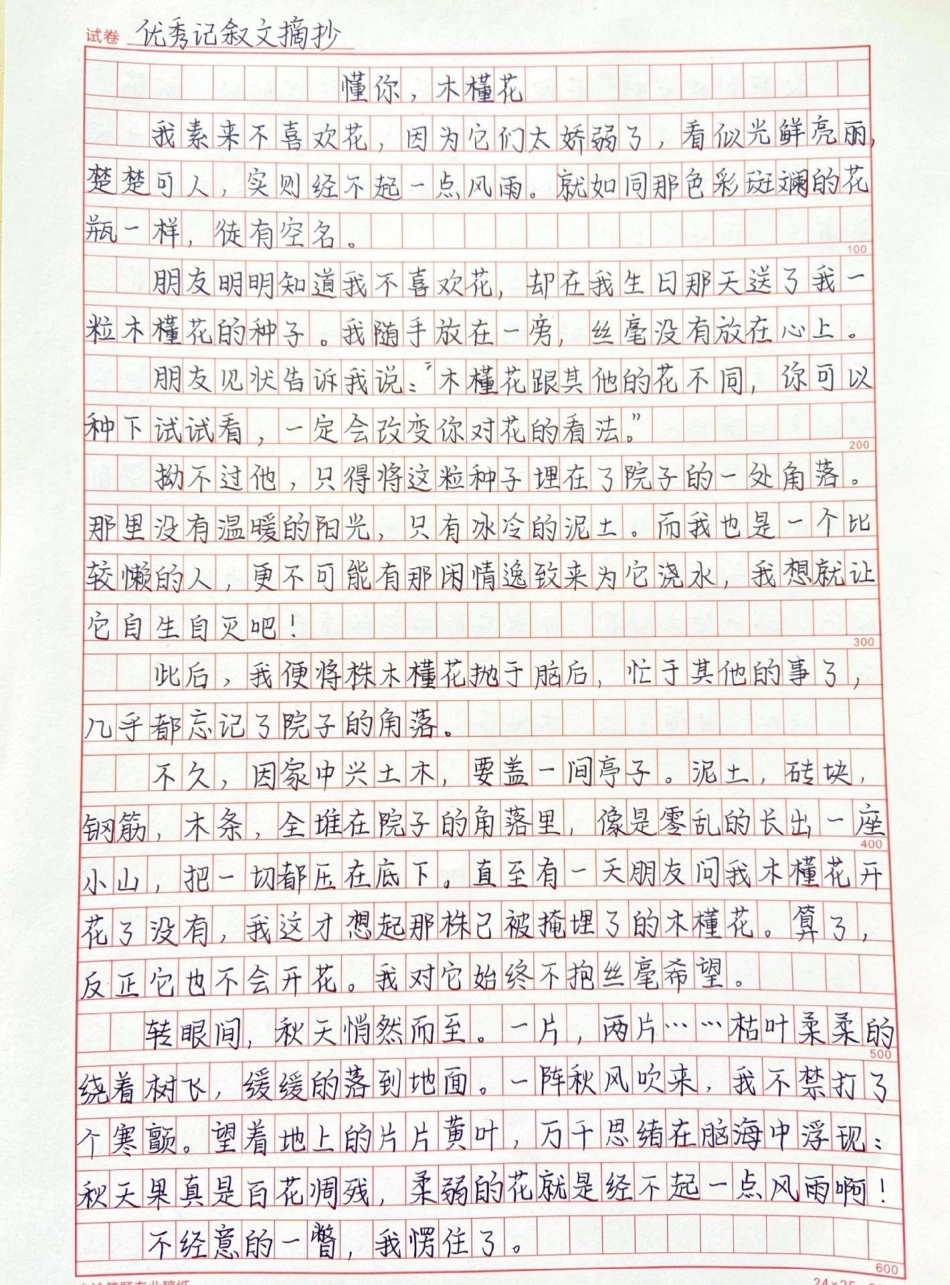 试卷 优秀记叙文摘抄
懂你，木槿花
我素来不喜欢花，因为它们太娇弱了，看似光鲜亮丽，
楚楚可人，实则经不起一点风雨。就如同那色彩斑斓的花
瓶一样，徒有空名。
100
朋友明明知道我不喜欢花，却在我生日那天送了我一
粒木槿花的种子。我随手放在一旁，丝毫没有放在心上。
朋友见状告诉我说：“木槿花跟其他的花不同，你可以
种下试试看，一定会改变你对花的看法。”
200
拗不过他，只得将这粒种子埋在了院子的一处角落。
那里没有温暖的阳光，只有冰冷的泥土。而我也是一个比
较懒的人，更不可能有那闲情逸致来为它浇水，我想就让
它自生自灭吧！
300
此后，我便将株木槿花抛于脑后，忙于其他的事了，
几乎都忘记了院子的角落。
不久，因家中兴土木，要盖一间亭子。泥土，砖块，
钢筋，木条，全堆在院子的角落里，像是零乱的长出一座
400
小山，把一切都压在底下。直至有一天朋友问我木槿花开
花了没有，我这才想起那株已被掩埋了的木槿花。算了，
反正它也不会开花。我对它始终不抱丝毫希望。
转眼间，秋天悄然而至。一片，两片……枯叶柔柔的
500
绕着树飞，缓缓的落到地面。一阵秋风吹来，我不禁打了
个寒颤。望着地上的片片黄叶，万千思绪在脑海中浮现：
秋天果真是百花凋残，柔弱的花就是经不起一点风雨啊！
不经意的一瞥，我愣住了。
600